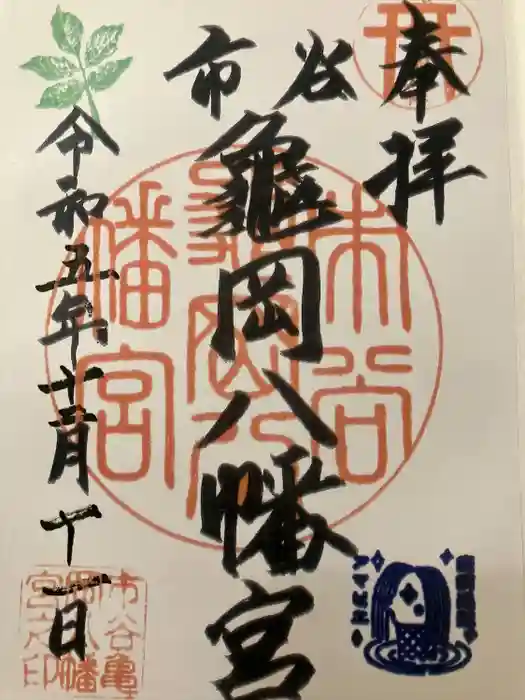 奉拝
市谷
龜岡八幡宮
令和五年十二月十一日
市谷
龜岡八
幡宮
市谷亀
岡八幡
宮之印
アマビエ